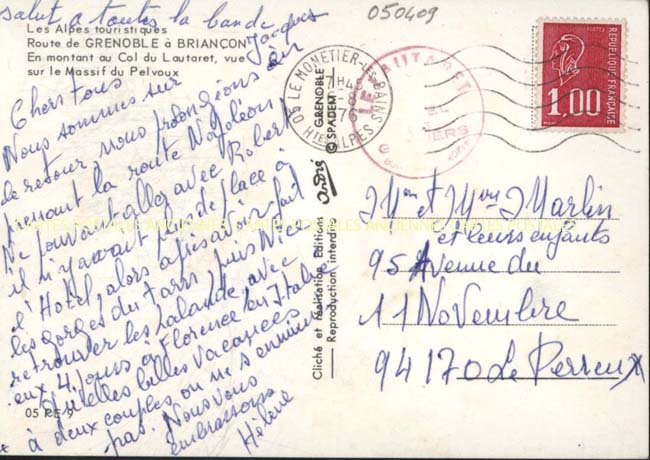 salut a toutes la bande
Jacques
050409
Les Alpes touristiques
Route de GRENOBLE à BRIANÇON
En montant au Col du Lautaret, vue
sur le Massif du Pelvoux
Chers tous
Nous sommes sur
le retour, nous prolongeons en
prenant la route Napoléon,
Ne pouvant aller avec Robert
il n'y avait plus de place à
l'Hotel, alors après avoir fait
les gorges du tarn, puis Nice
retrouver les Lalande, avec
eux 4 jours à Florence en Italie
Quelles belles vacances
à deux couples on ne s'ennuie
pas. Nous vous
embrassons
Hélène
05 PE 9
GRENOBLE
© SPADEM
andré
Cliché et réalisation Editions
Reproduction interdite
05 LE MONETIER-LES-BAINS
HTES ALPES
LAUTARET
REPUBLIQUE FRANÇAISE
1,00
Mr et Mme J Marlin
et leurs enfants
95 Avenue du
11 Novembre
94170 Le Perreux
CARTES POSTALES ANCIENNES